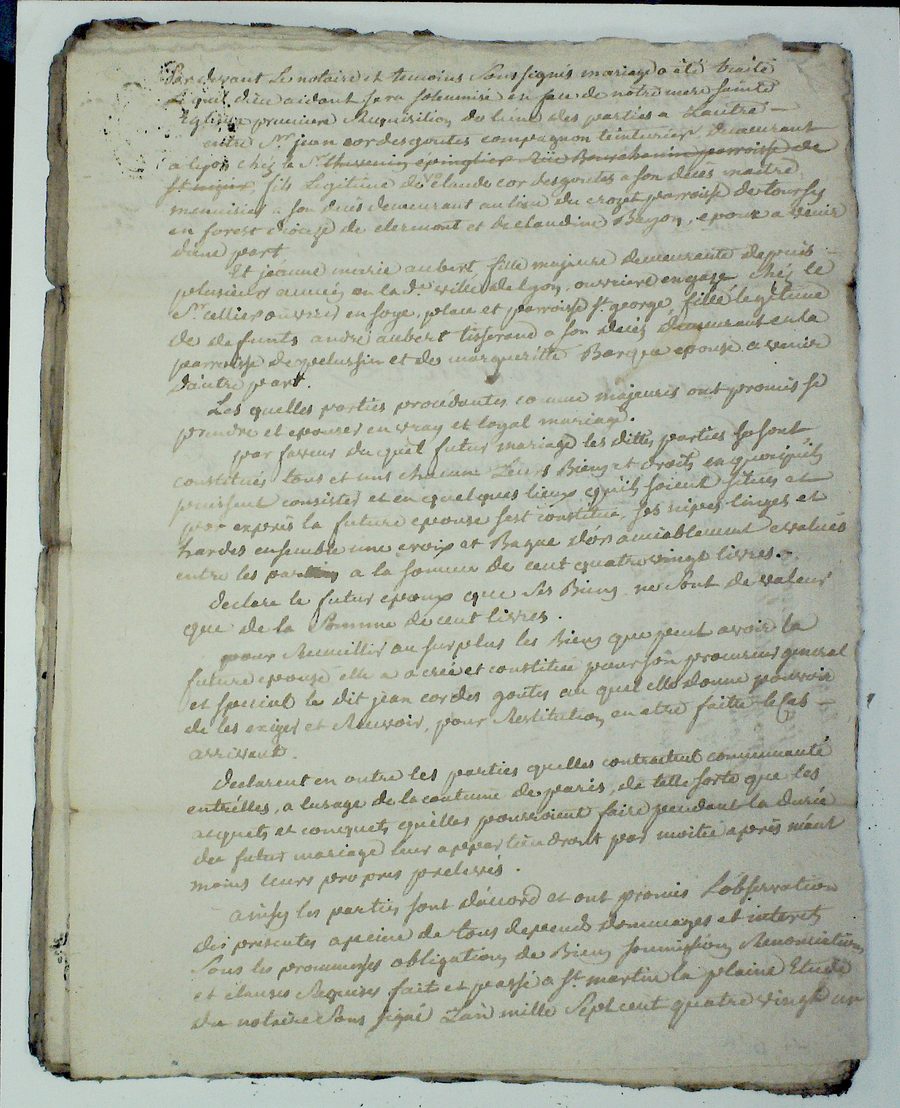 Par devant Le notaire et temoins Soussignés mariage a été traité
Le quel dieu aidant sera solemnisé en face de notre mere sainte
Eglise a premiere Requisition de lune des parties a Lautre —
entre Sr. jean cordesgoutes compagnon teinturier demeurant
a lyon chez le Sr. thevenin epinglier rüe parroisse de
St nizier, fils Legitime de claude cordesgoutes a son deces maitre
menuisier a son deces demeurant au lieu du crozet parroisse de toursy
en forest dioceze de clermont et de claudine Bayon, epoux a venir
dune part
Et jeanne marie aubert fille majeure demeurante depuis
plusieurs années en la de. ville de Lyon, ouvriere en gaze chés le
Sr. cellier ouvrier en soye, place et parroisse St. george, fille legitime
de defunts andré aubert tisserand a son deces demeurant en la
parroisse de pelussin et de margueritte Barque epouse a venir
dautre part.
Les quelles parties procédantes comme majeures ont promis se
prendre et epouser en vray et loyal mariage.
par faveur du quel futur mariage les dittes parties se sont
constitués tous et uns chacuns Leurs Biens et droits en quoi quils
puissent consister et en quelques lieux quils soient situés et
par exprès la future epouse sest constituée ses nipes linges et
hardes ensemble une croix et Bague dor amiablement evalués
entre les parties a la somme de cent quatre vingt livres. —
declare le futur epoux que ses Biens ne sont de valeur
que de la Somme de cent livres.
pour Recueillir au surplus les Biens que peut avoir la
future epouse elle a créé et constitué pour son procureur general
et special le dit jean cordesgoutes au quel elle donne pouvoir
de les exiger et Recevoir, pour Restitution en etre faitte le Cas
arrivant.
declarent en outre les parties quelles contractent communauté
entrelles, a lusage de la coutume de paris, de telle sorte que les
acquets et conquets quelles pourroient faire pendant la durée
du futur mariage leur appartiendront par moitié après néant
moins leurs propres prelevés.
ainsy les parties sont daccord et ont promis Lobservation
des presentes a peine de tous depends dommages et interets
Sous les promesses obligations de Biens soumissions Renonciations
et clauses Requises fait et passé a St. martin la plaine Etude
du notaire Sous signé Lan mille Sept cent quatre vingt un